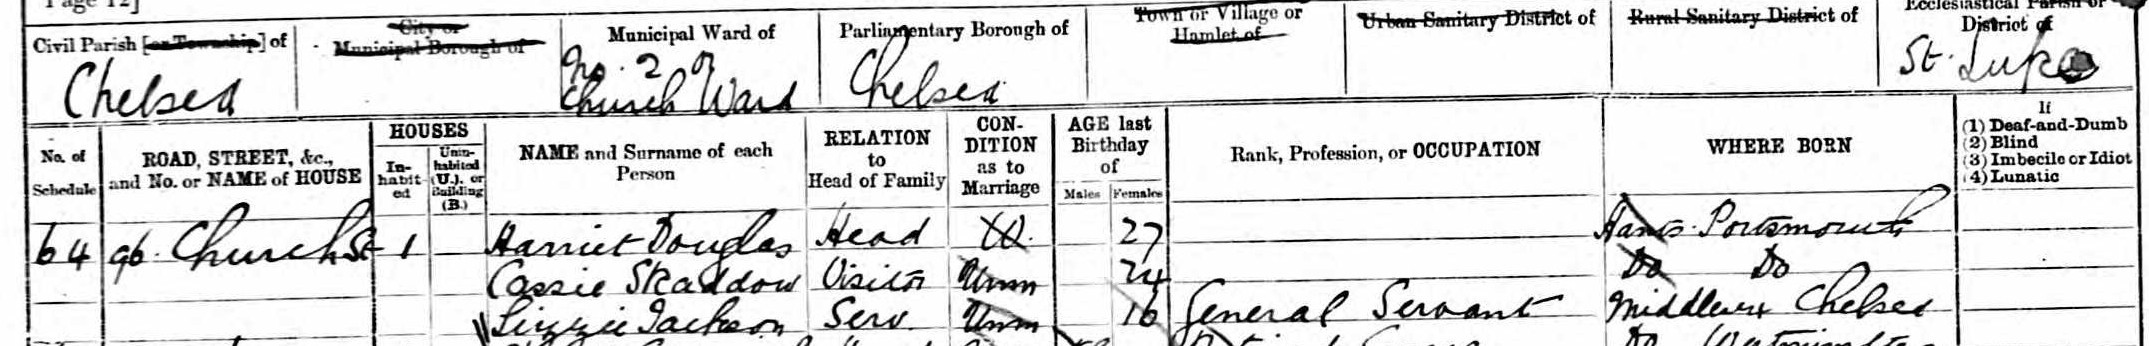 Page 12]
Civil Parish [or Township] of
City or
Municipal Borough of
Municipal Ward of
Parliamentary Borough of
Town or Village or
Hamlet of
Urban Sanitary District of
Rural Sanitary District of
Ecclesiastical Parish or
District of
Chelsea
No. 2 or
Church Ward
Chelsea
St. Luke
No. of
Schedule
ROAD, STREET, &c.,
and No. or NAME of HOUSE
HOUSES
In-
habit-
ed
Unin-
habited
(U.), or
Building
(B.)
NAME and Surname of each
Person
RELATION
to
Head of Family
CON-
DITION
as to
Marriage
AGE last
Birthday
of
Males
Females
Rank, Profession, or OCCUPATION
WHERE BORN
If
(1) Deaf-and-Dumb
(2) Blind
(3) Imbecile or Idiot
(4) Lunatic
64 96 Church St 1 Harriet Douglas Head W. 27 Hants Portsmouth
Cassie Skaddow Visitor Unm 24 Do Do
Lizzie Jackson Serv. Unm 16 General Servant Middlesex Chelsea